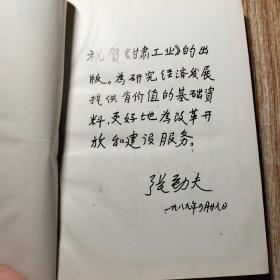 祝贺《甘肃工业》的出
版。为研究经济发展
提供有价值的基础資
料,更好地為改革开
放和建设服务。
张劲夫
一九八九年